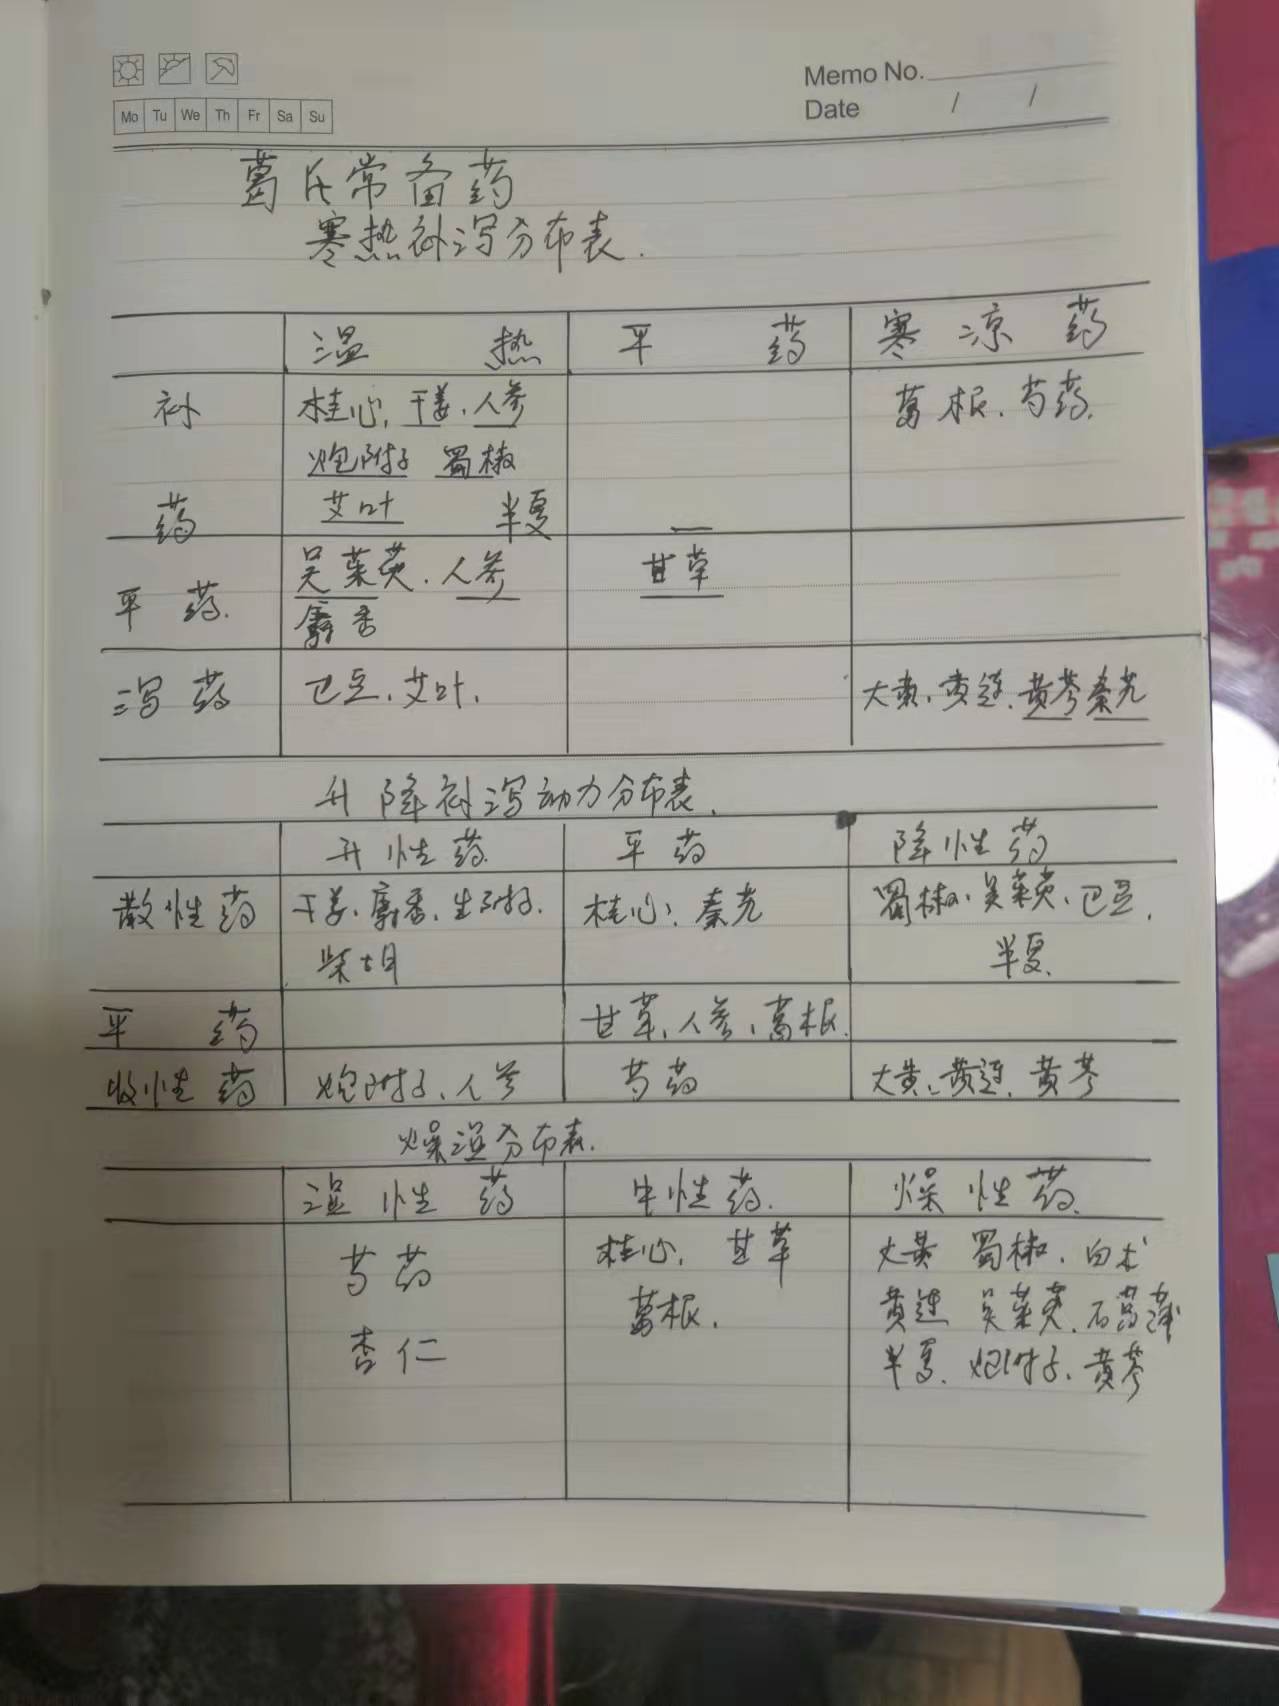 Memo No.
Mo Tu We Th Fr Sa Su
Date / /
葛氏常备药
寒热补泻分布表.
温热 平药 寒凉药
补药 桂心, 干姜, 人参 葛根、芍药.
炮附子 蜀椒
艾叶 半夏
平药. 吴茱萸、人参 甘草
麝香
泻药 巴豆、艾叶, 大黄、黄连、黄芩 秦艽
升降补泻动力分布表.
升性药 平药 降性药
散性药 干姜、麝香、生附子. 桂心、秦艽 蜀椒、吴茱萸、巴豆,
柴胡 半夏.
平药 甘草、人参、葛根.
收性药 炮附子、人参 芍药 大黄、黄连、黄芩
燥湿分布表.
湿性药 中性药. 燥性药.
芍药 桂心, 甘草 大黄 蜀椒、白术
葛根. 黄连 吴茱萸、石菖蒲
杏仁 半夏、炮附子、黄芩